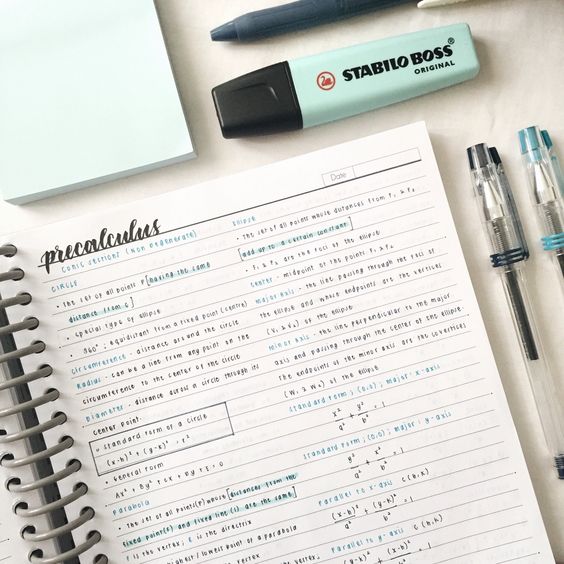 STABILO BOSS®
ORIGINAL
Date
precalculus
conic sections (non degenerate)
CIRCLE
• the set of all points P [having the same
distance from C]
• special type of ellipse
• 360°, equidistant from a fixed point (centre)
circumference - distance around the circle
Radius - can be a line from any point on the
circumference to the center of the circle
Diameter - distance across a circle through its
center point.
standard form of a circle
(x-h)² + (y-k)² = r²
• General form
Parabola
• the set of all points(P) whose [distances from the
fixed point(F) and fixed line(l) are the same]
is the vertex, l is the directrix
highest/lowest point of a parabola
vertex
Ellipse
• the set of all points whose distances from F₁ & F₂
[add up to a certain constant]
• F₁ & F₂ are the foci of the ellipse
center - midpoint of the points F₁ & F₂
major axis - the line passing through the foci of
the ellipse and whose endpoints are the vertices
(V₁ & V₂) of the ellipse
minor axis - the line perpendicular to the major
axis and passing through the center of the ellipse.
The endpoints of the minor axis are the covertices
(W₁ & W₂) of the ellipse
standard form; (0,0); major: x-axis
x²/a² + y²/b² = 1
standard form; (0,0); major: y-axis
y²/a² + x²/b² = 1
parallel to x-axis C(h,k)
(x-h)²/a² + (y-k)²/b² = 1
parallel to y-axis C(h,k)